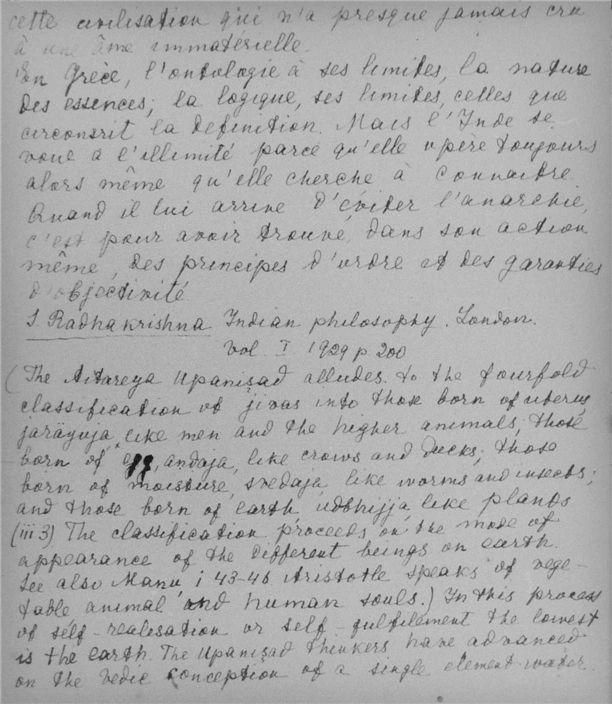 cette civilisation qui n'a presque jamais cru
à une âme immatérielle.
En Grèce, l'ontologie à ses limites, la nature
des essences; la logique, ses limites, celles que
circonsrit la definition. Mais l'Inde se
voue à l'illimité parce qu'elle opère toujours
alors même qu'elle cherche à connaitre.
Quand il lui arrive d'éviter l'anarchie,
c'est pour avoir trouvé, dans son action
même, des principes d'ordre et des garanties
d'objectivité
S. Radhakrishna Indian philosophy. London.
Vol I 1929 p 200
(The Aitareya Upaniṣad alludes to the fourfold
classification of jivas into those born of uterus
jarāyuja, like men and the higher animals; those
born of egg, andaja, like crows and ducks; those
born of moisture, svedaja like worms and insects;
and those born of earth udbhijja like plants
(iii.3) The classification proceeds on the mode of
appearance of the different beings on earth.
See also Manu i 43-46 Aristotle speaks of vege-
table animal and human souls.) In this process
of self-realisation or self-fulfilment the lowest
is the earth. The Upaniṣad thinkers have advanced
on the vedic conception of a single element water